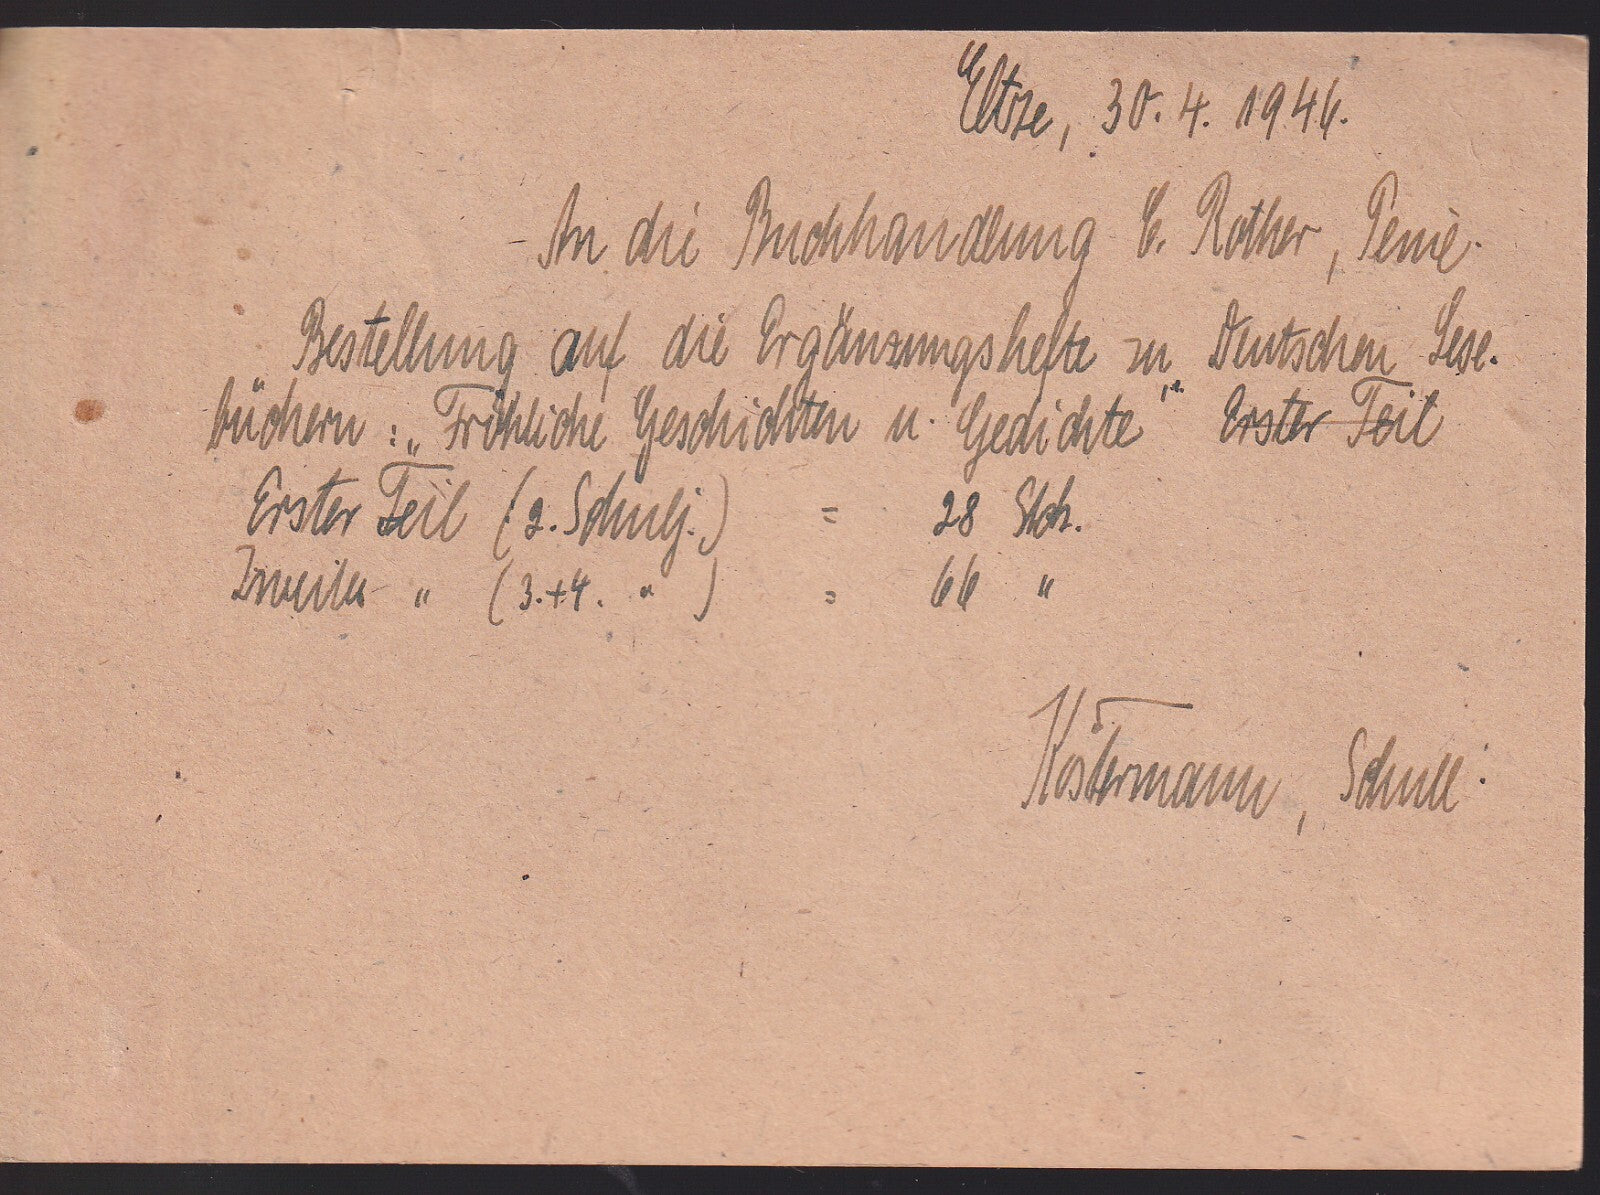 Eltze, 30. 4. 1946.
An die Buchhandlung C. Rother, Peine.
Bestellung auf die Ergänzungshefte zu Deutschen Lese-
büchern: „Fröhliche Geschichten u. Gedichte" Erster Teil
Erster Teil (2. Schulj.) = 28 Stck.
Zweiter " (3.+4. " ) = 66 "
Köstermann, Schull.